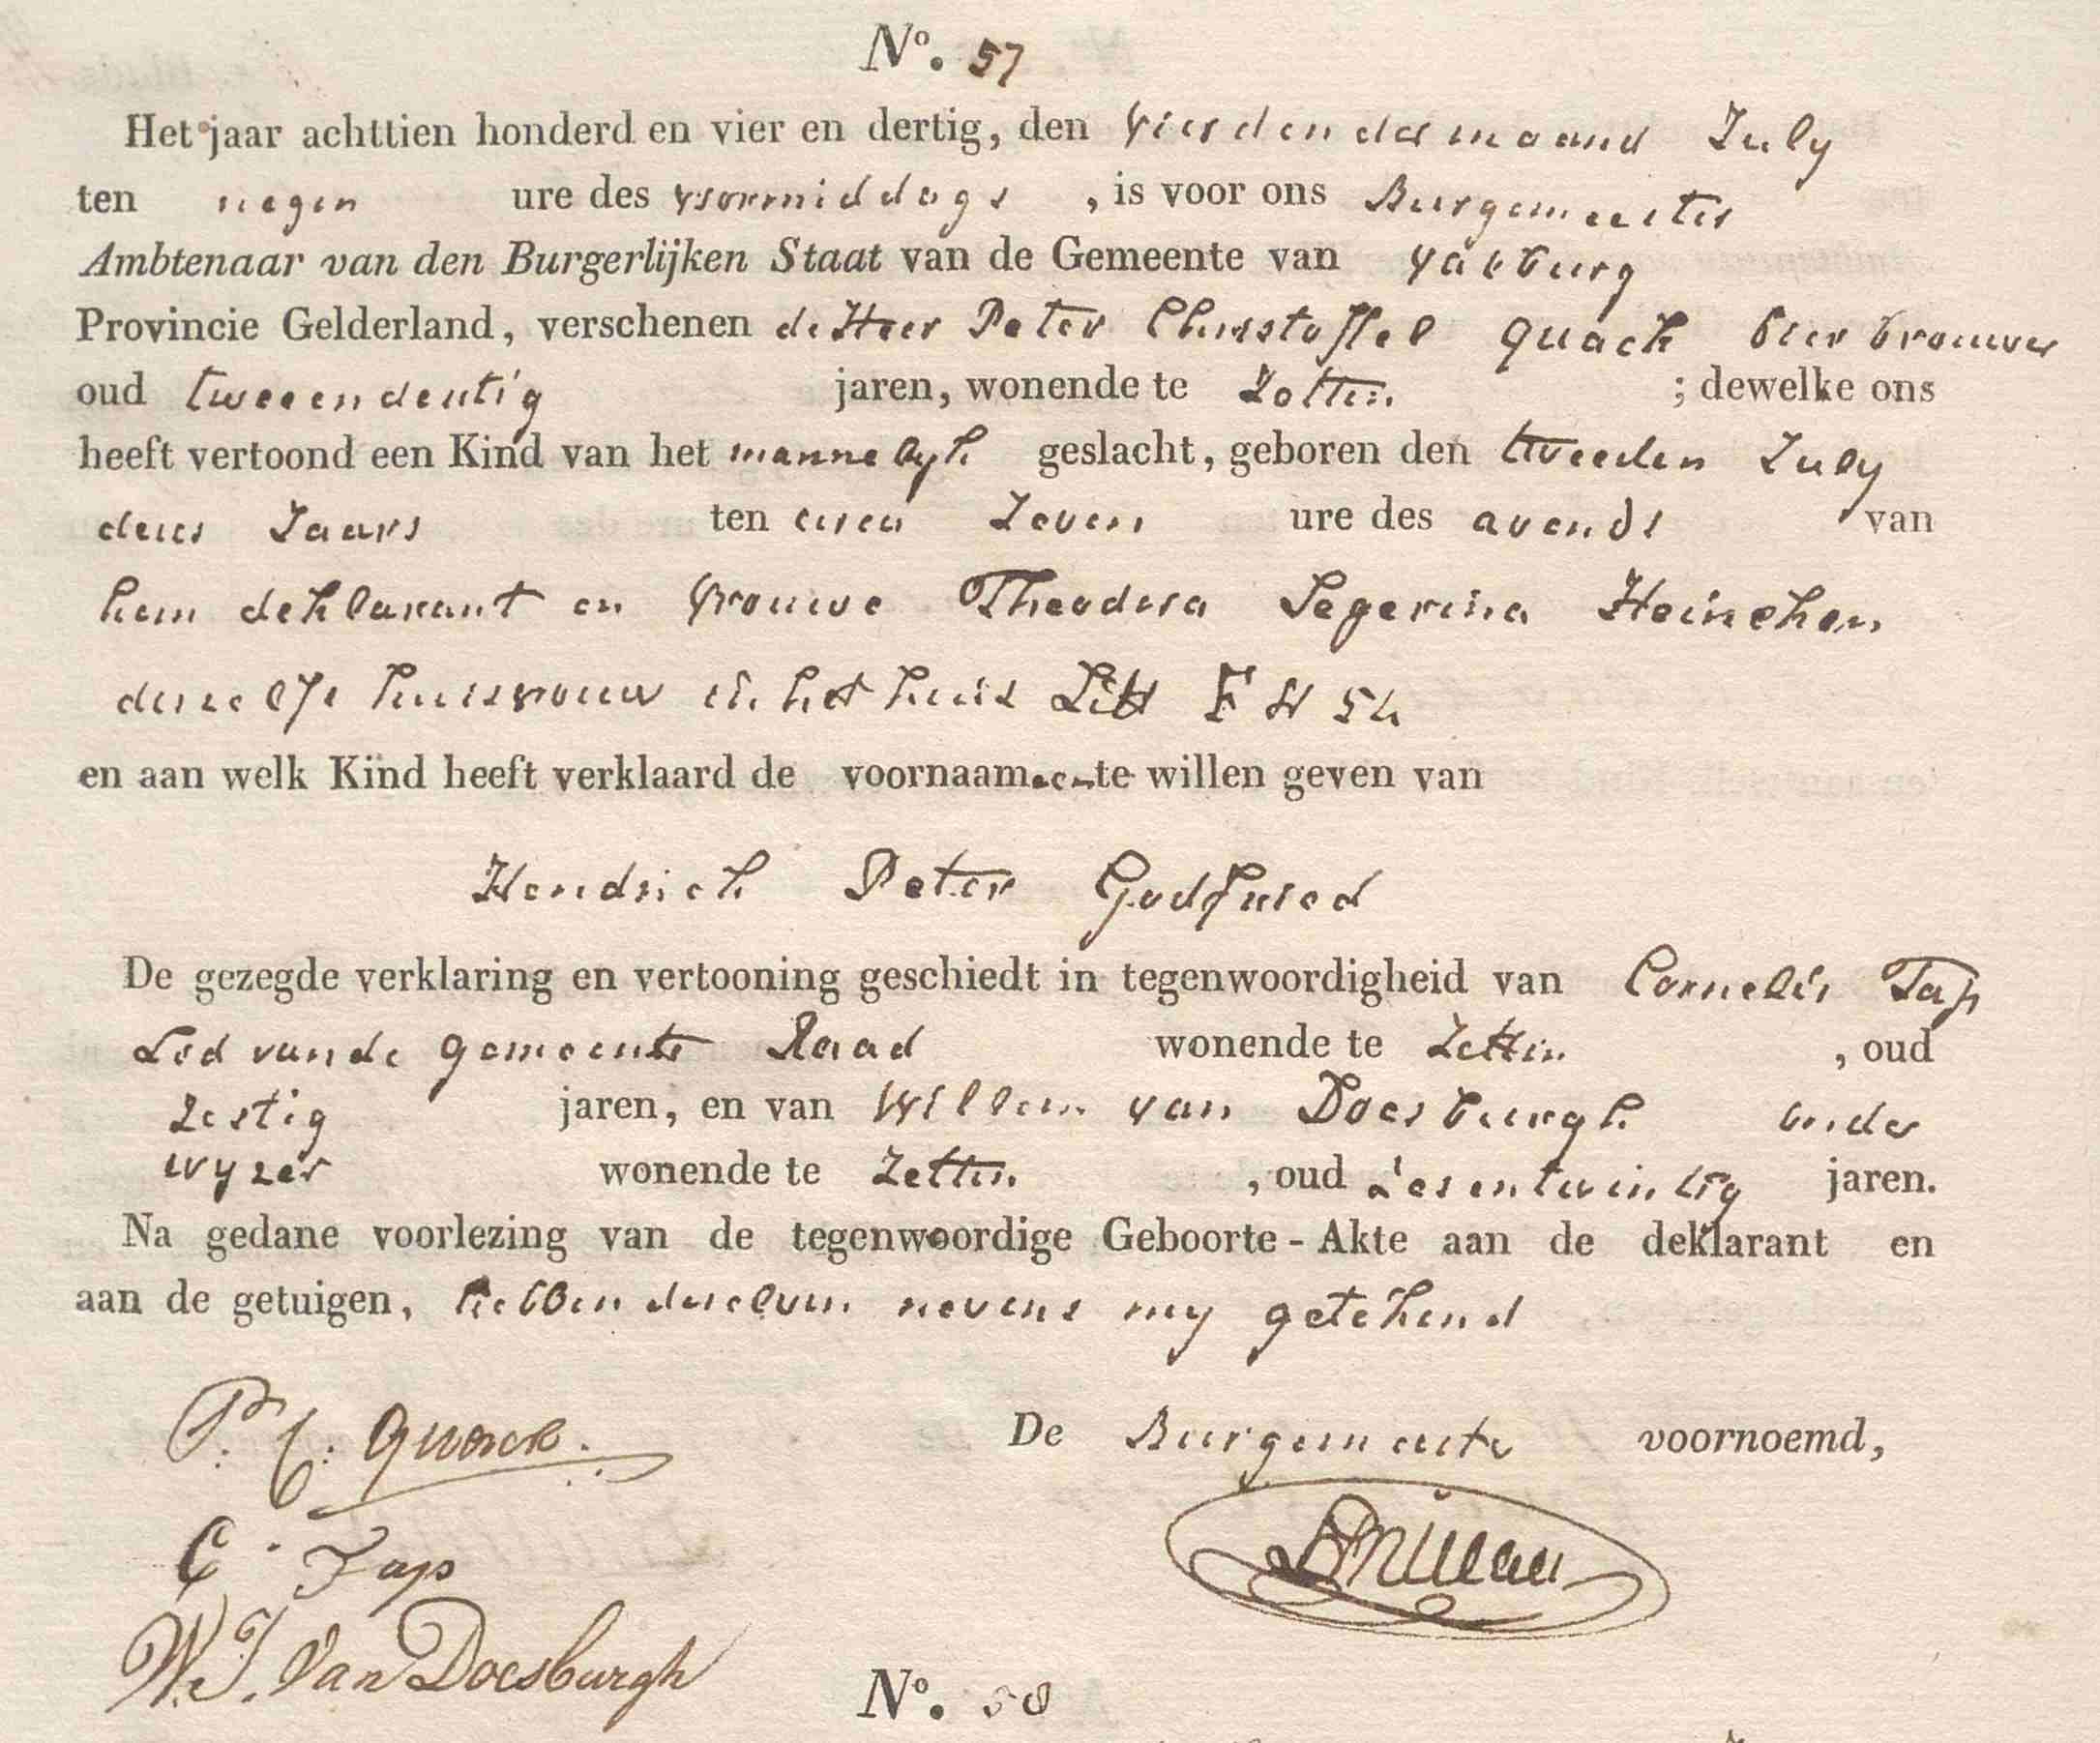 N.º 57
Het jaar achttien honderd en vier en dertig, den vierden der maand July
ten negen ure des voormiddags , is voor ons Burgemeester
Ambtenaar van den Burgerlijken Staat van de Gemeente van Valburg
Provincie Gelderland, verschenen de Heer Peter Christoffel Quack bier brouwer
oud tweeendertig jaren, wonende te Zetten ; dewelke ons
heeft vertoond een Kind van het mannelyk geslacht, geboren den tweeden July
dezes Jaars ten circa Zeven ure des avonds van
hem deklarant en Vrouwe Theodora Segerina Heineken
deszelfs huisvrouw in het huis Litt F N 54
en aan welk Kind heeft verklaard de voornaamen te willen geven van
Hendrick Peter Godfried
De gezegde verklaring en vertooning geschiedt in tegenwoordigheid van Cornelis Tap
Lid van de gemeente Raad wonende te Zetten , oud
Zestig jaren, en van Willem van Doesburgh onder
wyzer wonende te Zetten , oud Zesentwintig jaren.
Na gedane voorlezing van de tegenwoordige Geboorte-Akte aan de deklarant en
aan de getuigen, hebben dezelven nevens my getekend
P. C. Quack. De Burgemeester voornoemd,
C. Tap
W. J. Van Doesburgh
N.º 58